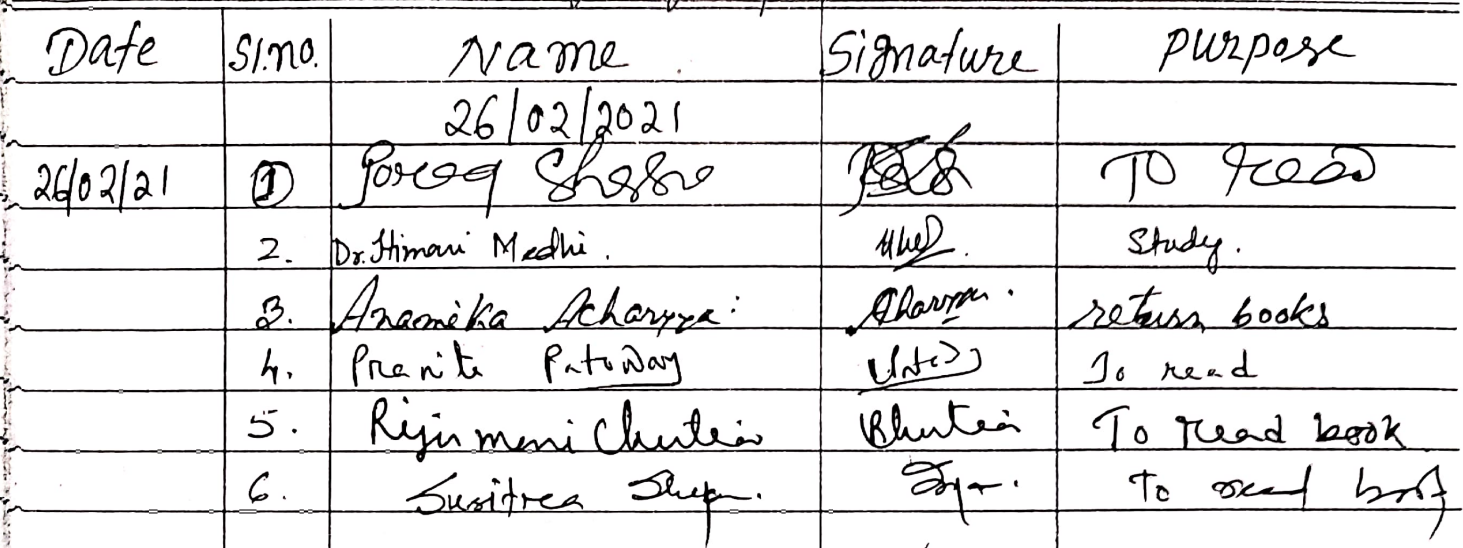 Date Sl.no. Name Signature Purpose
26/02/2021
26/02/21 1 To read
2. Dr. Himani Medhi. Study.
3. Anamika Acharyya: Acharyya. return books
4. Pranita Patowary To read
5. Rijumoni Chutia To read book
6. To read book